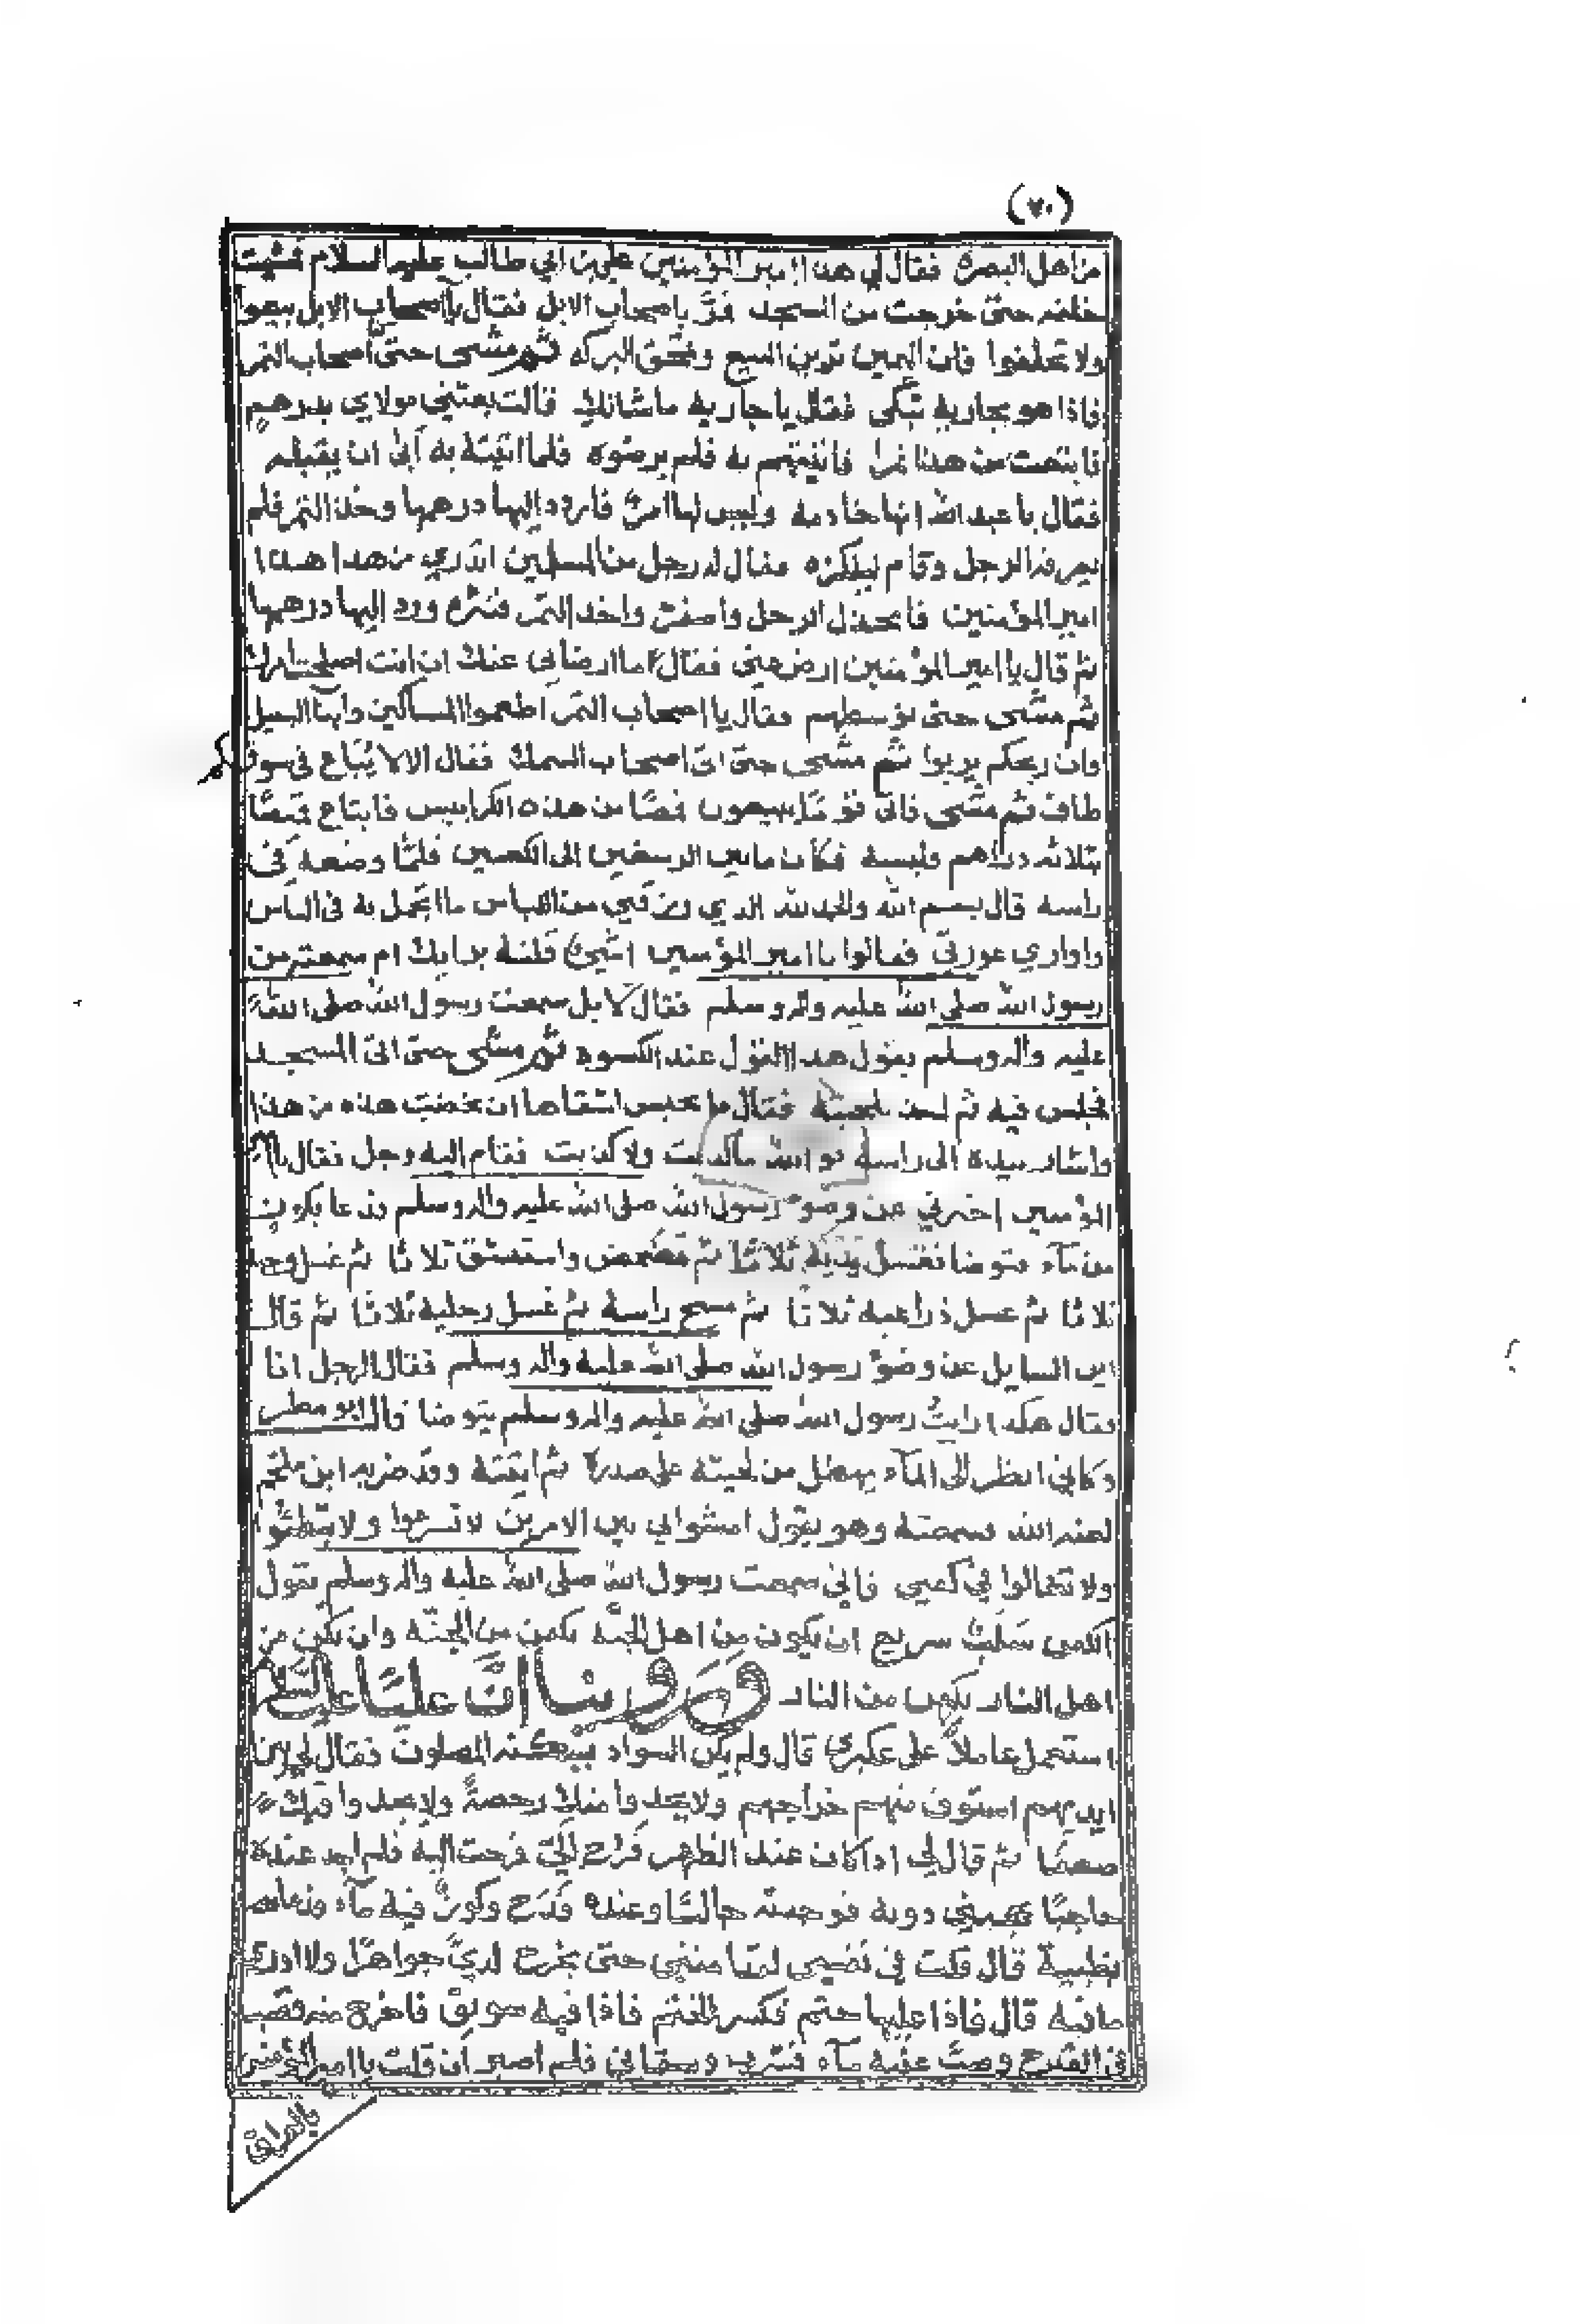 (٧٠)
من اهل البصرة فقال لي هذا امير المؤمنين علي بن ابي طالب عليه السلام فمشيت
خلفه حتى خرجت من المسجد فمرّ باصحاب الابل فقال يا اصحاب الابل بيعوا
ولا تحلفوا فان اليمين تزين البيع وتمحق البركه ثم مشى حتى اصحاب التمر
فاذا هو بجارية تبكي فقال يا جارية ما شانك قالت بعثني مولاي بدرهم
فابتعت من هذا تمرا فاتيتهم به فلم يرضوه فلما اتيتة به أبى ان يقبله
فقال يا عبد الله انها خادمه وليس لها امر فاردد اليها درهمها وخذ التمر فلم
يعرفه الرجل وقام ليلكزه فقال له رجل من المسلمين اتدري من هذا هذا
امير المؤمنين الرجل واصفر واخذ التمر ورد اليها درهمها
ثم قال يا امير المؤمنين ارض عني فقال ما ارضاني عنك ان انت اصلحت امرك
ثم مشى حتى توسطهم فقال يا اصحاب التمر اطعموا المساكين وابنا السبيل
فان ربحكم يربوا ثم مشى حتى اتى اصحاب السمك فقال الا لا يُباع في سوقكم
طاف ثم مشى فاتى قومًا يبيعون قمصًا من هذه الكرابيس فابتاع قميصًا
بثلاثه دراهم ولبسه فكان ما بين الرسغين الى الكعبين فلمّا وضعه في
راسه قال بسم الله والحمد لله الذي رزقني من اللباس ما اتجمل به في الناس
واواري عورتي فقالوا يا امير المؤمنين اشيئ قلته برايك ام سمعته من
رسول الله صلى الله عليه واله وسلم فقال لا بل سمعت رسول الله صلى الله
عليه واله وسلم يقول هذا القول عند الكسوه ثم مشى حتى اتى المسجد
فجلس فيه ثم اخذ بلحيته فقال ما يحبس اشقاها ان تخضب هذه من هذا
واشار بيده الى راسه فو الله ما كذبت ولا كذبت فقام اليه رجل فقال يا امير
المؤمنين اخبرني عن وضوء رسول الله صلى الله عليه واله وسلم فدعا بكوز
من مآء فتوضا فغسل يديه ثلاثا ثم تمضمض واستنشق ثلاثا ثم غسل وجهه
ثلاثا ثم غسل ذراعيه ثلاثا ثم مسح راسه ثم غسل رجليه ثلاثا ثم قال
اين السايل عن وضوء رسول الله صلى الله عليه واله وسلم فقال الرجل انا
فقال هكذا رايتُ رسول الله صلى الله عليه واله وسلم يتوضا قال ابو مطر
وكاني انظر الى المآء يهطل من لحيته على صدره ثم اتيته وقد ضربه ابن ملجم
لعنه الله فسمعته وهو يقول امشوا بي بين الامرين لا تسرعوا ولا تبطئوا
ولا تغالوا في كفني فاني سمعت رسول الله صلى الله عليه واله وسلم يقول
الكفن سلب سريع ان يكون من اهل الجنه يكفن من الجنّه وان يكن من
اهل النار يكفن من النار وروينا انّ عليًّا عليه السلام
استعمل عاملا على عكبرى قال ولم يكن السواد يسكنه المصلون فقال لي بين
ايديهم استوف منهم خراجهم ولا يجدوا منك رخصةً ولا يجدوا فيك
ضعفا ثم قال لي اذا كان عند الظهر فرُح إليّ فرحت اليه فلم اجد عنده
حاجبًا يحجبني دونه فوجدته جالسًا وعنده قدَح وكوز فيه مآء فدعا
بظبية قال قلت في نفسي لقد امنني حتى يخرج اليّ جواهرًا ولا ادري
ما فيه قال فاذا عليها ختم فكسر الختم فاذا فيه سويق فاخرج منه فصب
في القدح وصبّ عليه مآء فشرب وسقاني فلم اصبر ان قلت يا امير المؤمنين
بالعراق